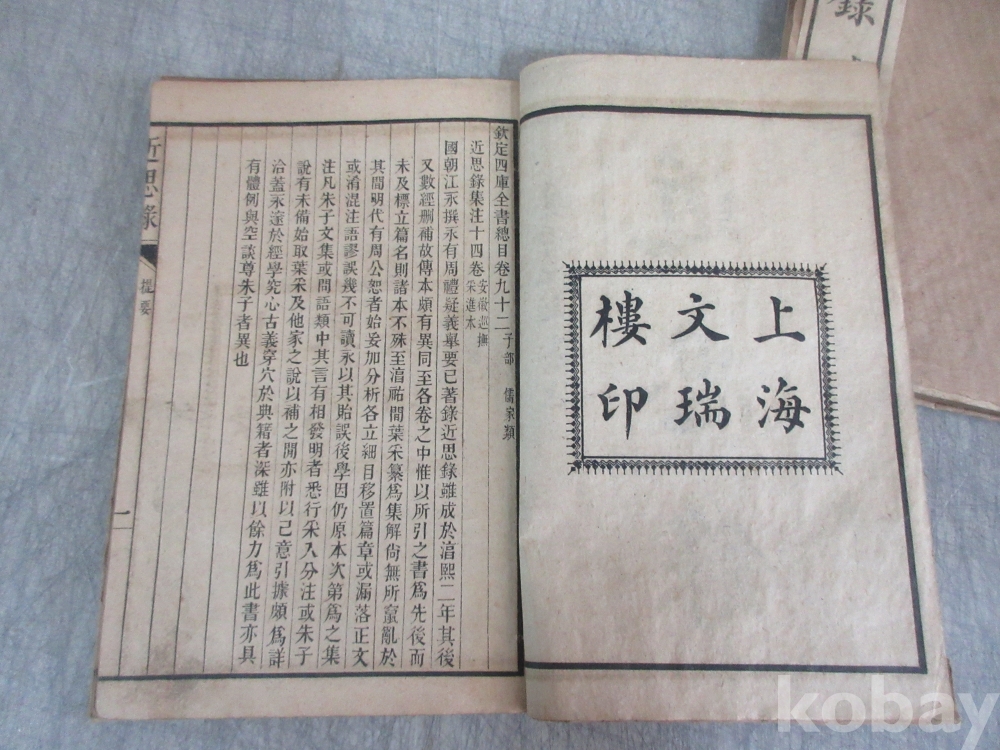 錄
上海
文瑞
樓印
欽定四庫全書總目卷九十二子部 儒家類
近思錄集注十四卷安徽巡撫采進本
國朝江永撰永有周禮疑義舉要已著錄近思錄雖成於湻熙二年其後
又數經刪補故傳本頗有異同至各卷之中惟以所引之書爲先後而
未及標立篇名則諸本不殊至湻祐閒葉采纂爲集解尙無所竄亂於
其閒明代有周公恕者始妄加分析各立細目移置篇章或漏落正文
或淆混注語謬誤幾不可讀永以其貽誤後學因仍原本次第爲之集
注凡朱子文集或問語類中其言有相發明者悉行采入分注或朱子
說有未備始取葉采及他家之說以補之閒亦附以己意引據頗爲詳
洽蓋永邃於經學究心古義穿穴於典籍者深雖以餘力爲此書亦具
有體例與空談尊朱子者異也
近思錄 提要 一
kobay